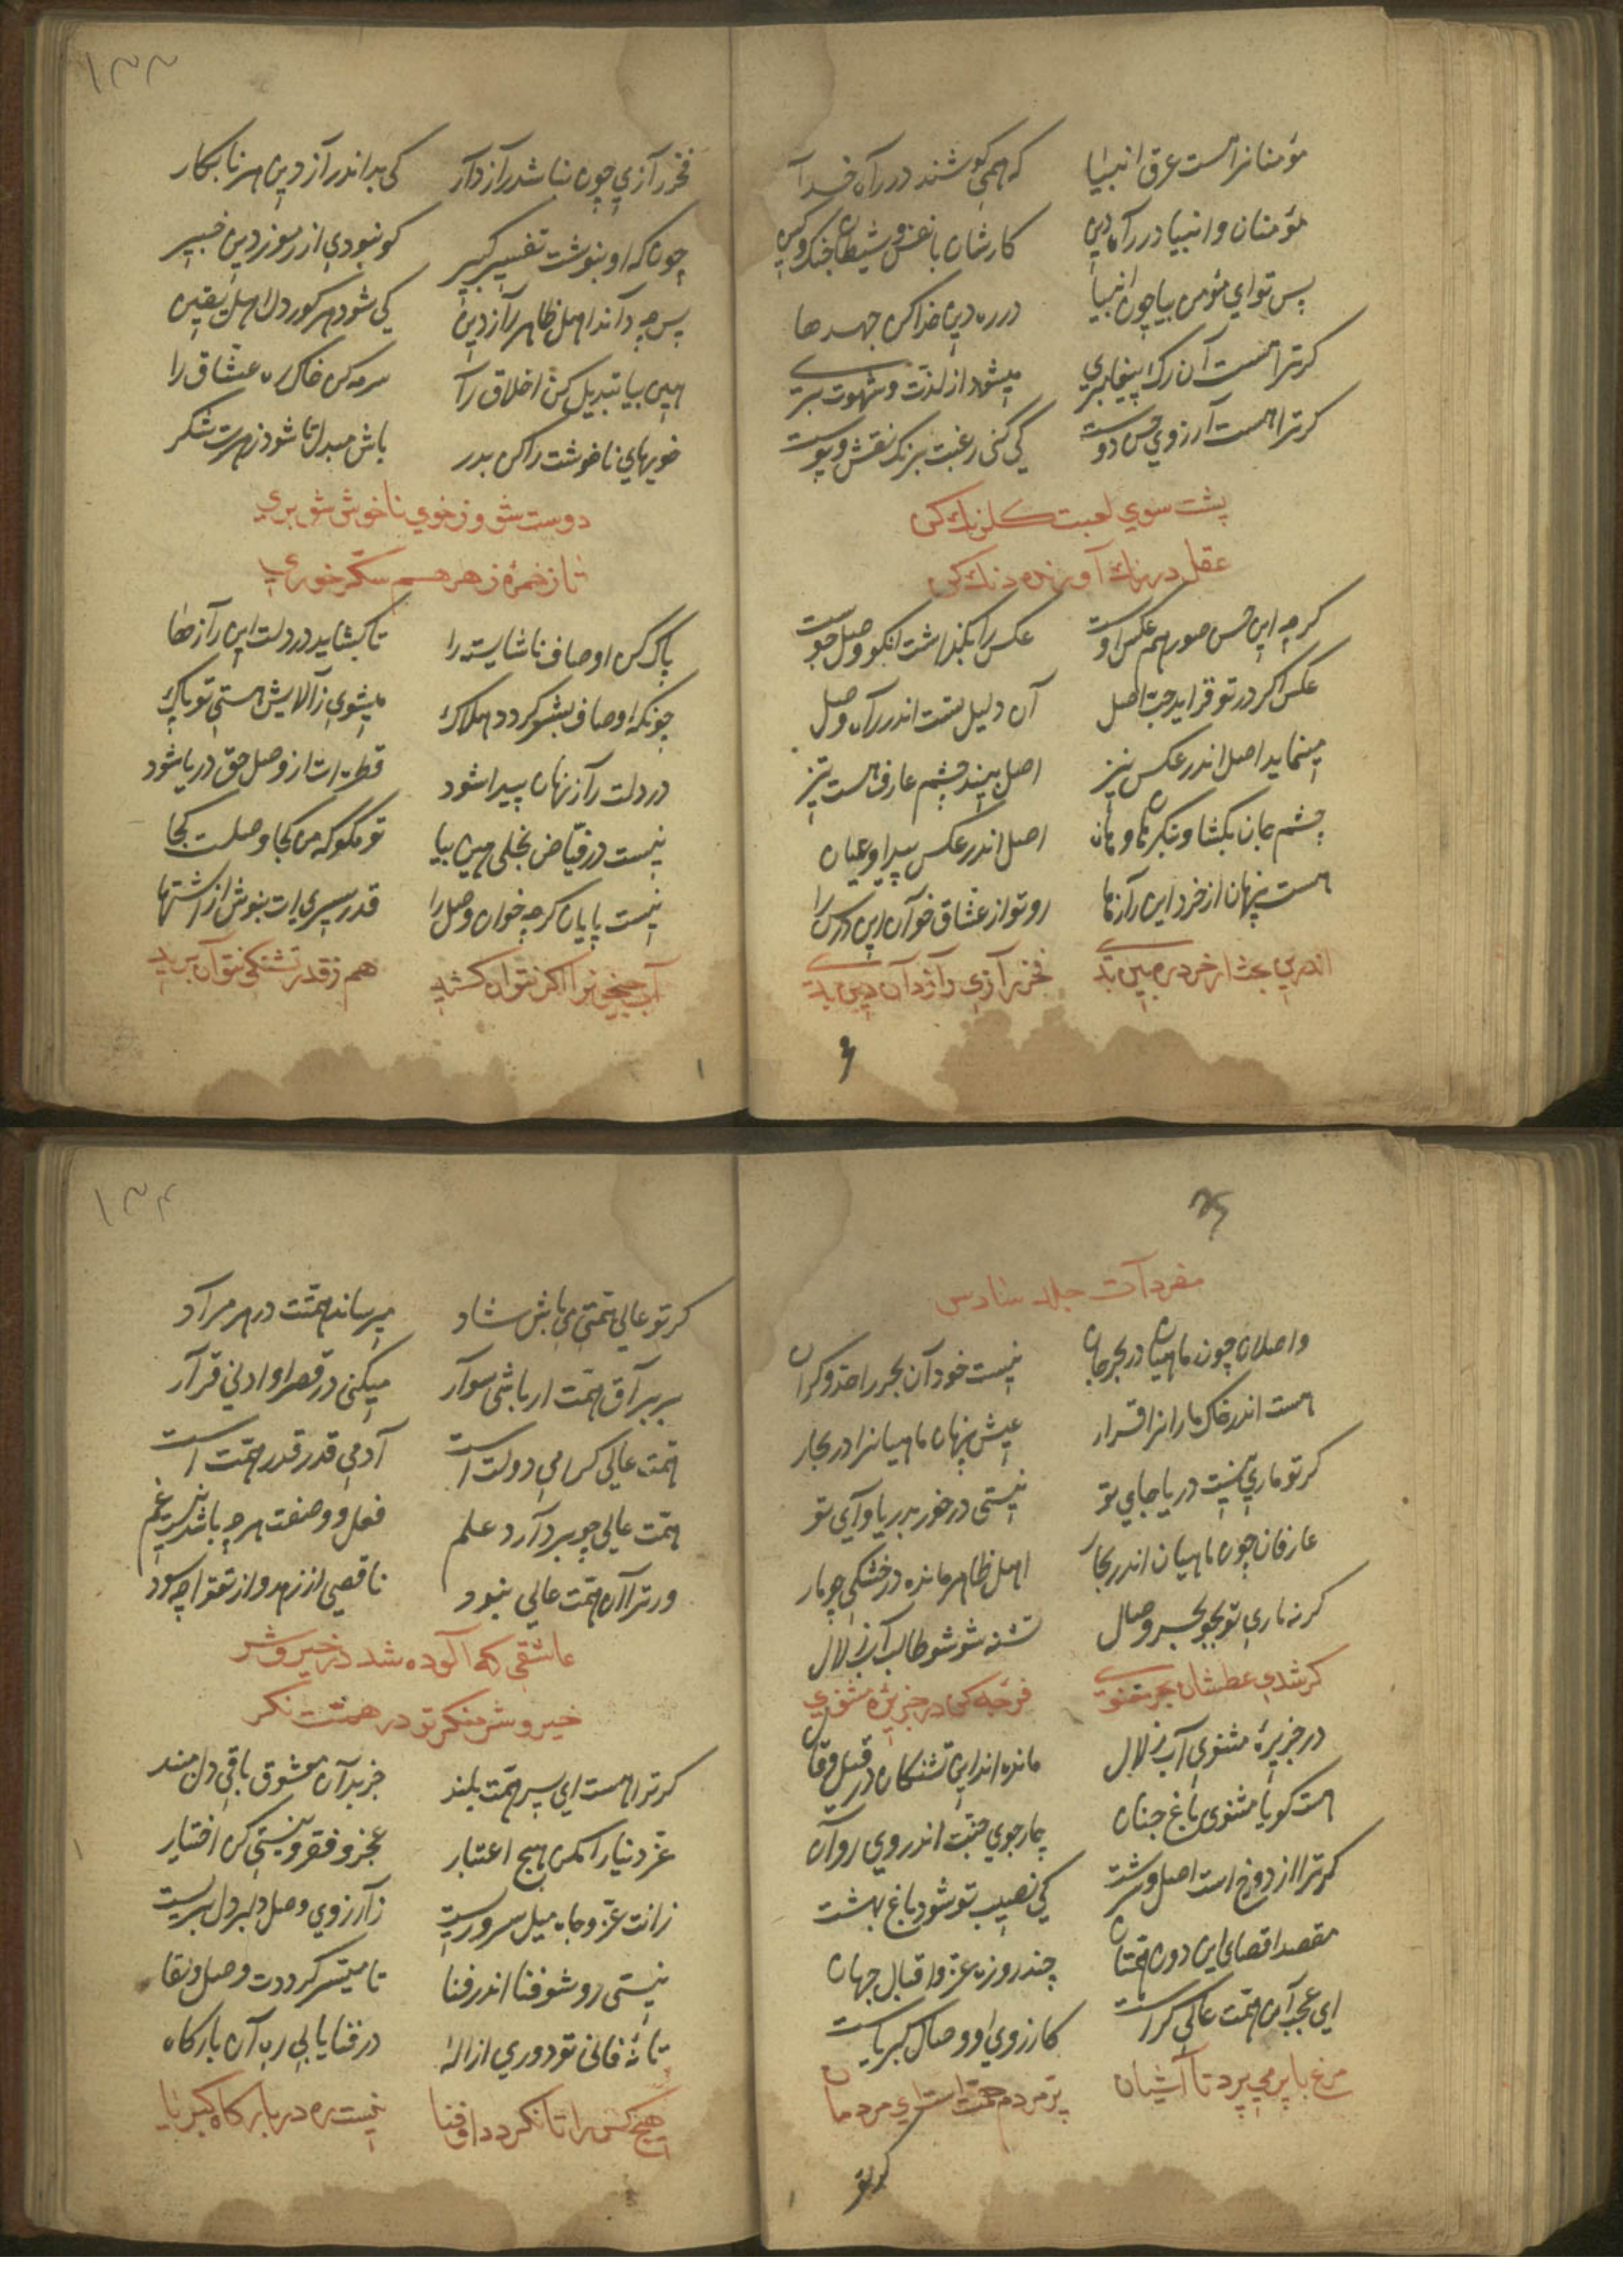 مؤمنانرا هست عرق انبیا که همی کوشند در راه خدا
مؤمنان و انبیا در راه دین کارشان با نفس و شیطان جنک و کین
پس تو ای مؤمن بیا چون انبیا در ره دین خدا کن جهدها
کر ترا هست آن رک پیغامبری میشود از لذت و شهوت بری
کر ترا هست آرزوی حسن دوست کی کنی رغبت برنک نقش و پوست
پشت سوی لعبت کلرنک کن
عقل در رنک آورنده دنک کن
کرچه این حسن صور هم عکس اوست عکس را بکذاشت انکو وصل جوست
عکس اکر در تو فزاید حب اصل آن دلیل تست اندر راه وصل
مینماید اصل اندر عکس نیز اصل بیند چشم عارف هست تیز
چشم جان بکشا و بنکر هان و هان اصل اندر عکس پیدا و عیان
هست پنهان از خرد این رازها رو تو از عشاق خوان این درس را
اندرین بحث ار خرد ره بین بدی فخر رازی رازدان دین بدی
فخر
۱۳۳
فخر رازی چون نباشد رازدار کی بداند راز دین هر نابکار
چونکه او بنوشت تفسیر کبیر کو نبودی از رموز دین خبیر
پس چه داند اهل ظاهر راز دین کی شود هر کوردل اهل یقین
هین بیا تبدیل کن اخلاق را سرمه کن خاک ره عشاق را
خویهای ناخوشت را کن بدر باش مبدل تا شود زهرت شکر
دوست شو وز خوی ناخوش شو بری
تا ز خمره زهر هم شکر خوری
پاک کن اوصاف ناشایسته را تا کشاید در دلت این رازها
چونکه اوصاف بشر کردد هلاک میشوی ز آلایش هستی تو پاک
در دلت راز نهان پیدا شود قطره‌ات از وصل حق دریا شود
نیست در فیاض بخلی هین بیا تو مکو که من کجا وصلت کجا
نیست پایان کرچه خوان وصل را قدر سیری‌ات بنوش از اشتها
آب جیحون را اکر نتوان کشید هم ز قدر تشنکی نتوان برید
مفردات جلد سادس
واصلان چون ماهیان در بحر جان نیست خود آن بحر را حد و کران
هست اندر خاک مارانرا قرار عیش پنهان ماهیانرا در بحار
کر تو ماری نیست دریا جای تو نیستی در خور بدریا وای تو
عارفان چون ماهیان اندر بحار اهل ظاهر مانده در خشکی چو مار
کر نه ماری تو بجو بحر وصال تشنه شو شو طالب آب زلال
کر شدی عطشان بحر معنوی فرجه کن در جزیره مثنوی
در جزیرهٔ مثنوی آب زلال مانده اند این تشنکان در قیل و قال
هست کویا مثنوی باغ جنان چارجوی جنت اندر وی روان
کر ترا از دوزخ است اصل و سرشت کی نصیب تو شود باغ بهشت
مقصد اقصای این دون همتان چند روزه عز و اقبال جهان
ای عجب آن همت عالی کراست کارزوی او وصال کبریاست
مرغ با پر میپرد تا آشیان پر مردم همتست ای مردمان
کر تو
۱۳۴
کر تو عالی همتی می باش شاد میرساند همتت در هر مراد
بر براق همت ار باشی سوار میکنی در قصر او ادنی قرار
همت عالی کرامی دولت است آدمی قدر قدر همت است
همت عالی چو بردارد علم فعل و وصفت هرچه باشد نیست غم
ور ترا آن همت عالی نبود ناقصی از زهد و از تقوا چه سود
عاشقی که آلوده شد در خیر و شر
خیر و شر منکر تو در همت نکر
کر ترا هست ای پسر همت بلند جز بدان معشوق باقی دل مبند
عز دنیا را مکن هیچ اعتبار عجز و فقر و نیستی کن اختیار
زانت عز و جاه میل سروریست ز آرزوی وصل دلبر دل بریست
نیستی رو شو فنا اندر فنا تا میسر کرددت وصل و بقا
تا نهٔ فانی تو دوری از اله در فنا یابی ره آن بارکاه
هیچ کس را تا نکردد او فنا نیست ره در بارکاه کبریا